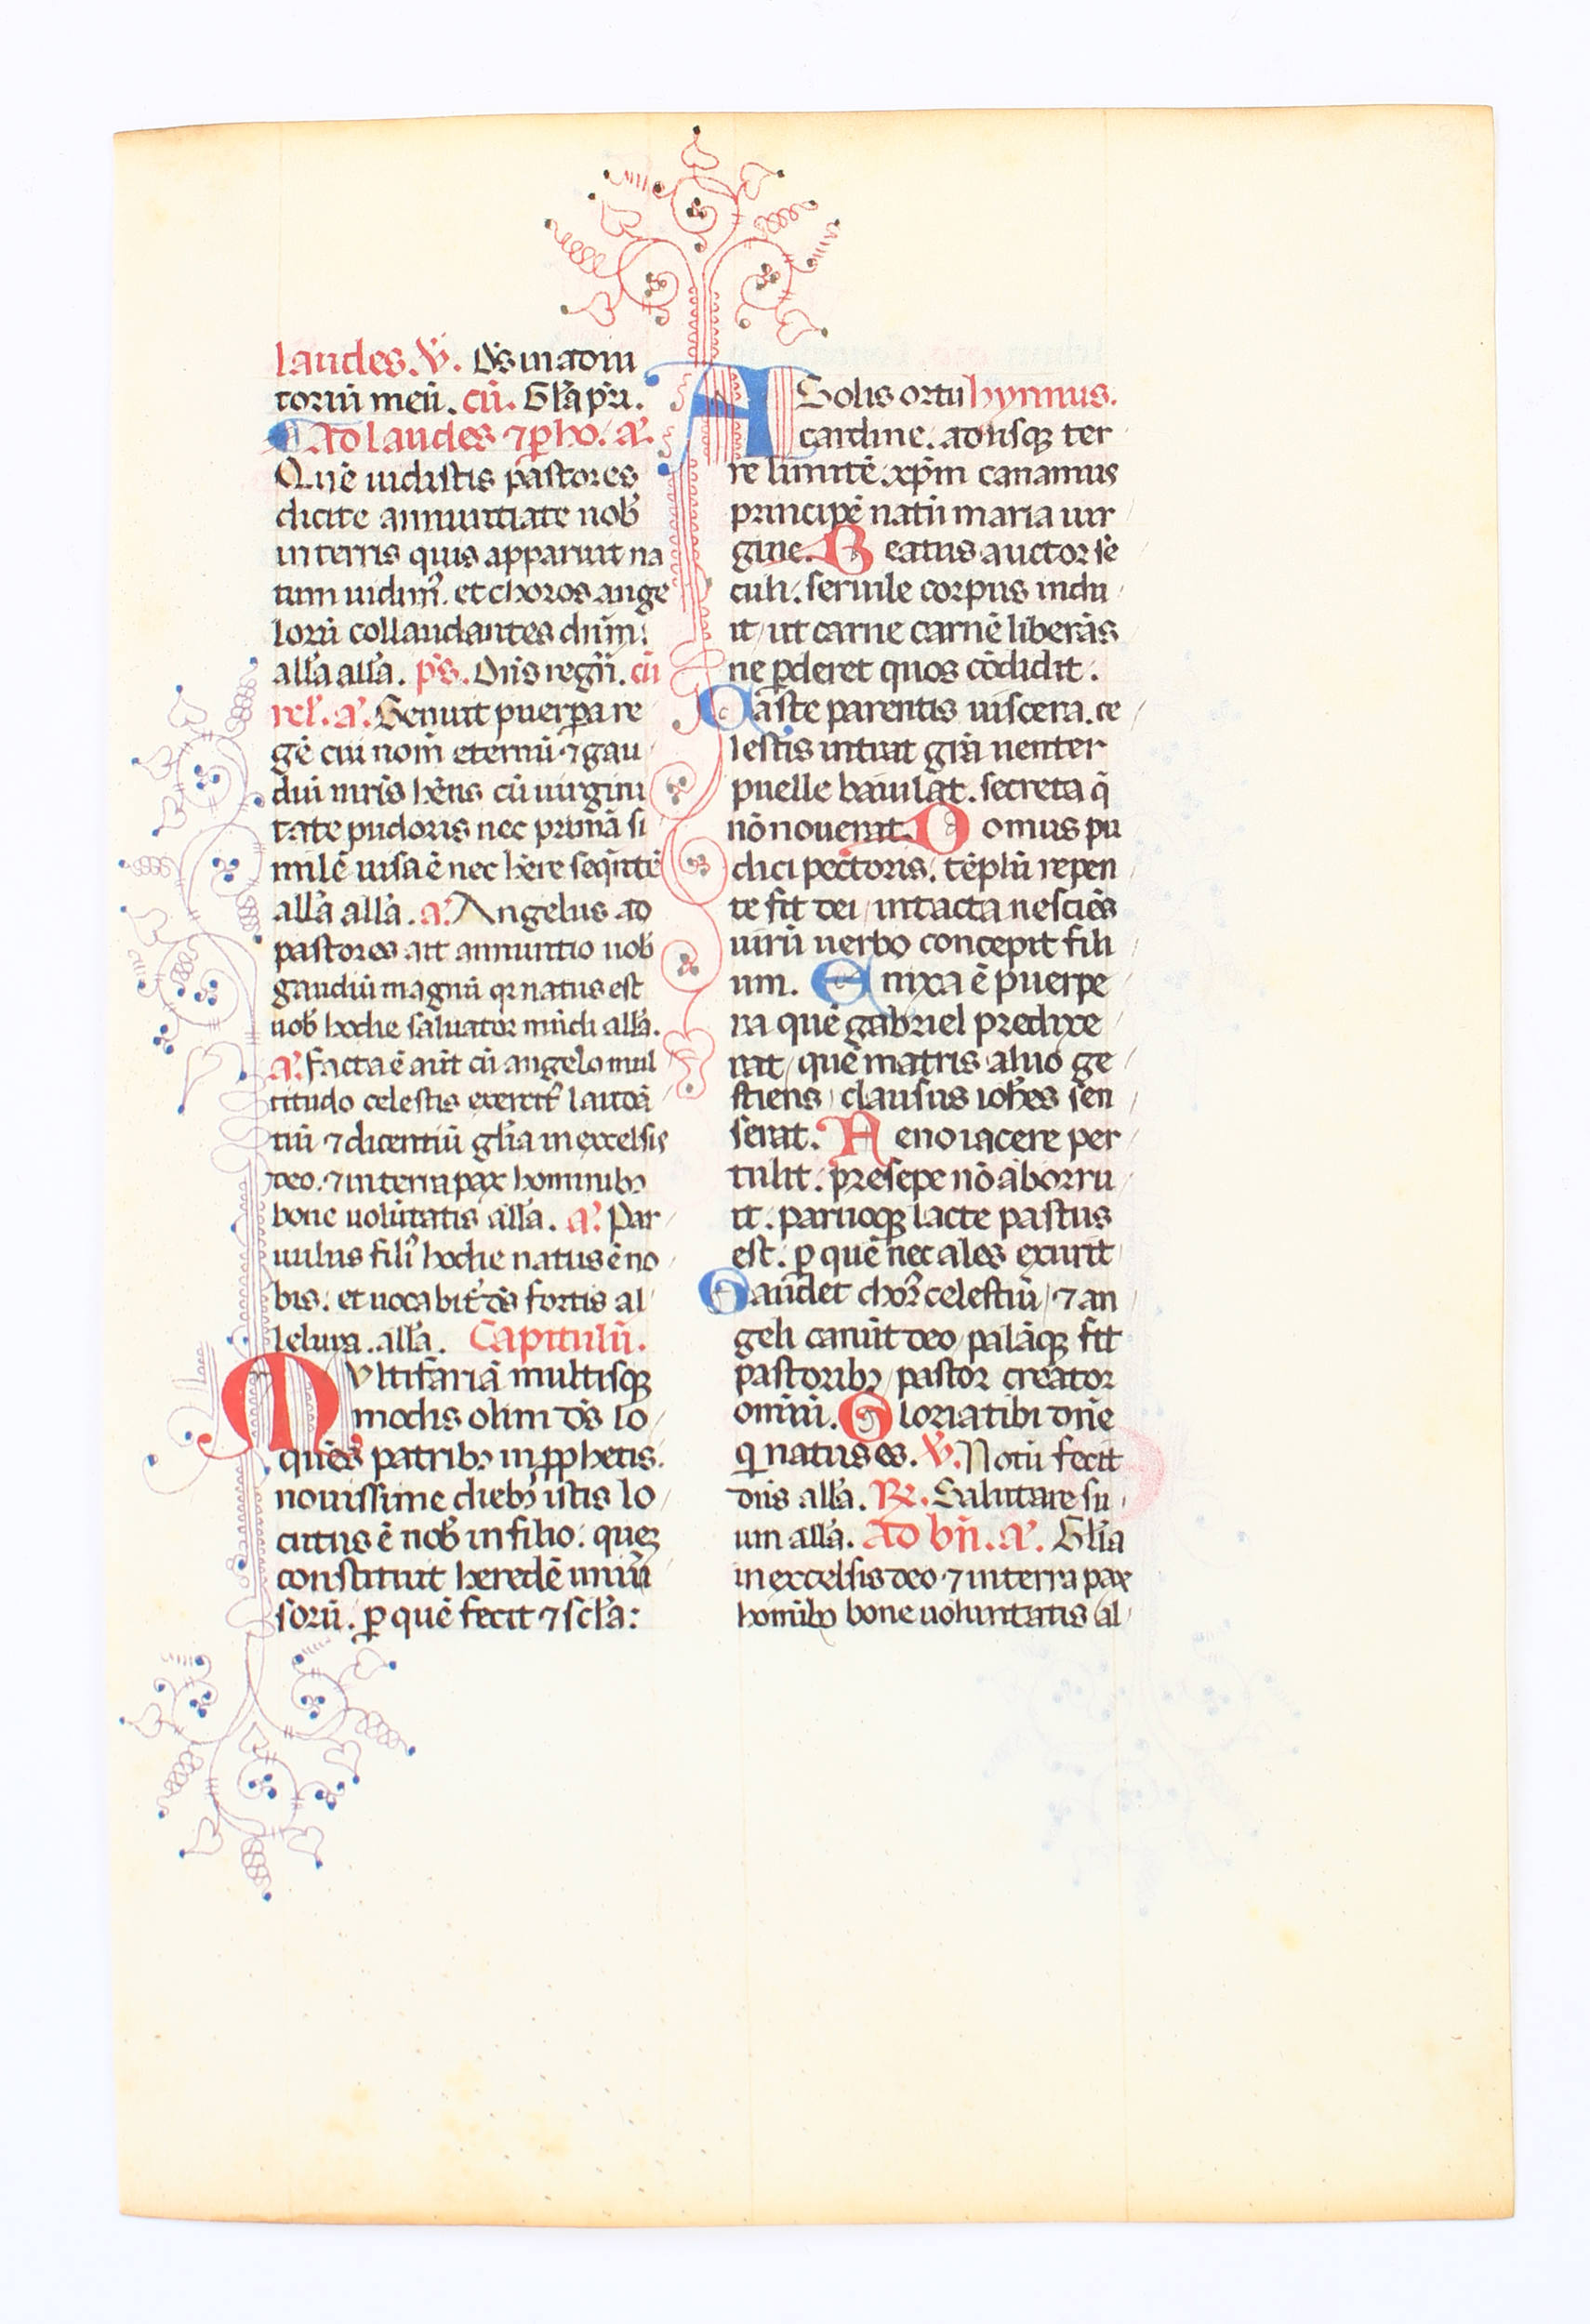 laudes. v̄. Dˢ in adiu
toriū meū. cū. Gl̄a pr̄i.
Ad laudes ⁊ p̱ ho. a͛.
Quē uidistis pastores
dicite annuntiate nob̄
in terris quis apparuit na
tum uidim᾽. et choros ange
lorū collaudantes dn̄m:
all̄a all̄a. ps̄. Dn̄s regn̄. cū
rel̄. a͛. Genuit puerp̱a re
gē cui nom̄ eternū ⁊ gau
diū mr̄is hēns cū uirgini
tate pudoris nec primā si
milē uisa ē nec hēre seq̄ntē
all̄a all̄a. a͛. Angelus ad
pastores ait annuntio uob̄
gaudiū magnū qꝛ natus est
uob̄ hodie saluator mūdi all̄a.
a͛. facta ē aūt cū angelo mul
titudo celestis exercit᾽ laudā
tiū ⁊ dicentiū gl̄ia in excelsis
deo. ⁊ in terra pax hominibꝫ
bone uolūtatis all̄a. a͛. Par
uulus fili᾽ hodie natus ē no
bis: et uocabit᾽ dˢ fortis al
leluya. all̄a. Capitulū.
Multifariā multisqꝫ
modis olim dˢ lo
quēs patribꝫ in ꝓphetis.
nouissime diebꝫ istis lo
cutus ē nob̄ in filio: queꝫ
constituit heredē uniū
sorū. p̱ quē fecit ⁊ scl̄a:
A Solis ortu hymnus.
cardine. adusqꝫ ter
re limitē. xp̄m canamus
principē natū maria uir
gine. Beatus auctor se
culi: seruile corpus indu
it / ut carne carnē liberās
ne p̱deret quos cōdidit.
Caste parentis uiscera. ce
lestis intrat gr̄a uenter
puelle baiulat. secreta q̄
nō nouerat. Domus pu
dici pectoris. tēplū repen
te fit dei / intacta nesciēs
uirū uerbo concepit fili
um. Enixa ē puerpe
ra quē gabriel predixe
rat / quē matris aluo ge
stiens / clausus ioh̄es sen
serat. Feno iacere per
tulit: presepe nō aborru
it. paruoqꝫ lacte pastus
est. p̱ quē nec ales exurit
Gaudet chor᾽ celestiū / ⁊ an
geli canūt deo / palāqꝫ fit
pastoribꝫ / pastor creator
omniū. Gloria tibi dn̄e
q̱ natus es. v̄. Notū fecit
dn̄s all̄a. ℟. Salutare su
um all̄a. Ad bn̄. a͛. Gl̄ia
in excelsis deo ⁊ in terra pax
homībꝫ bone uoluntatis al